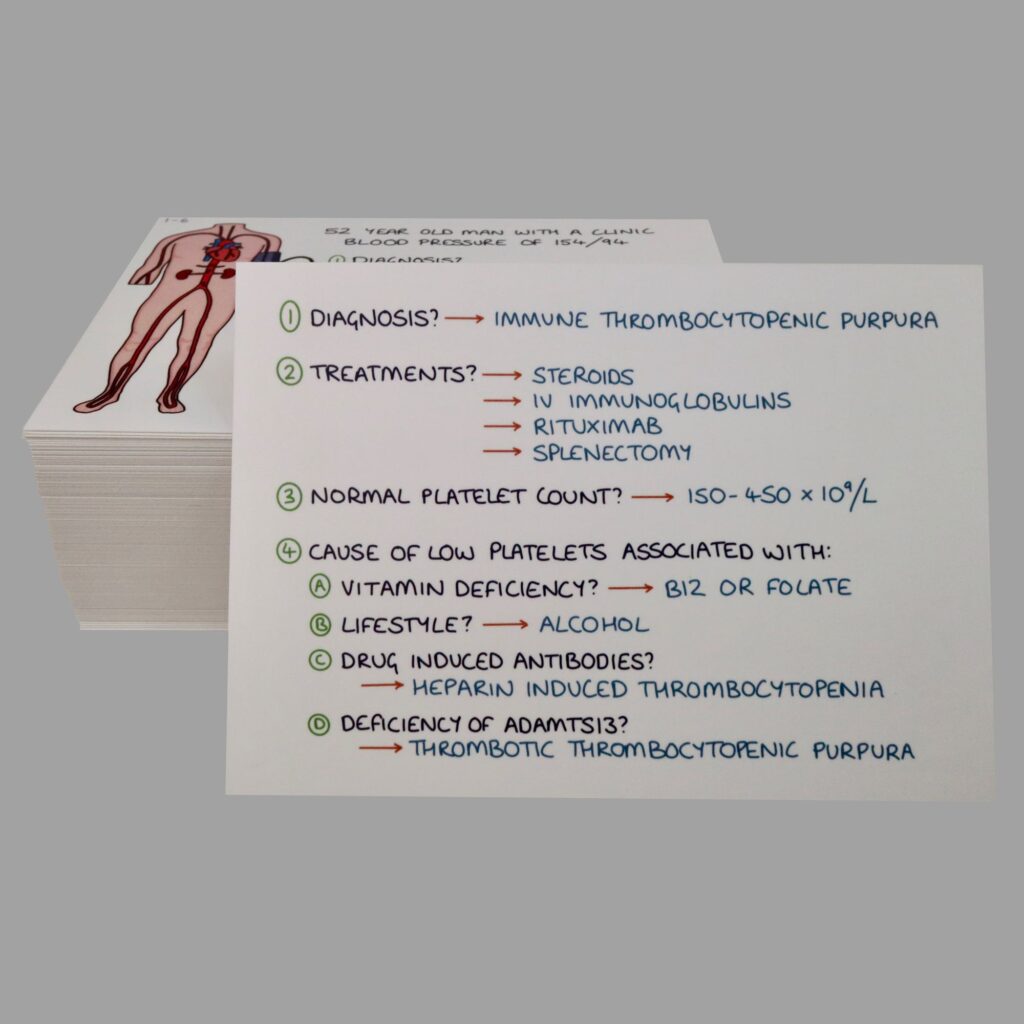 1-6
52 YEAR OLD MAN WITH A CLINIC
BLOOD PRESSURE OF 154/94
① DIAGNOSIS?
① DIAGNOSIS? → IMMUNE THROMBOCYTOPENIC PURPURA
② TREATMENTS? → STEROIDS
→ IV IMMUNOGLOBULINS
→ RITUXIMAB
→ SPLENECTOMY
③ NORMAL PLATELET COUNT? → 150-450 × 10⁹/L
④ CAUSE OF LOW PLATELETS ASSOCIATED WITH:
Ⓐ VITAMIN DEFICIENCY? → B12 OR FOLATE
Ⓑ LIFESTYLE? → ALCOHOL
Ⓒ DRUG INDUCED ANTIBODIES?
→ HEPARIN INDUCED THROMBOCYTOPENIA
Ⓓ DEFICIENCY OF ADAMTS13?
→ THROMBOTIC THROMBOCYTOPENIC PURPURA